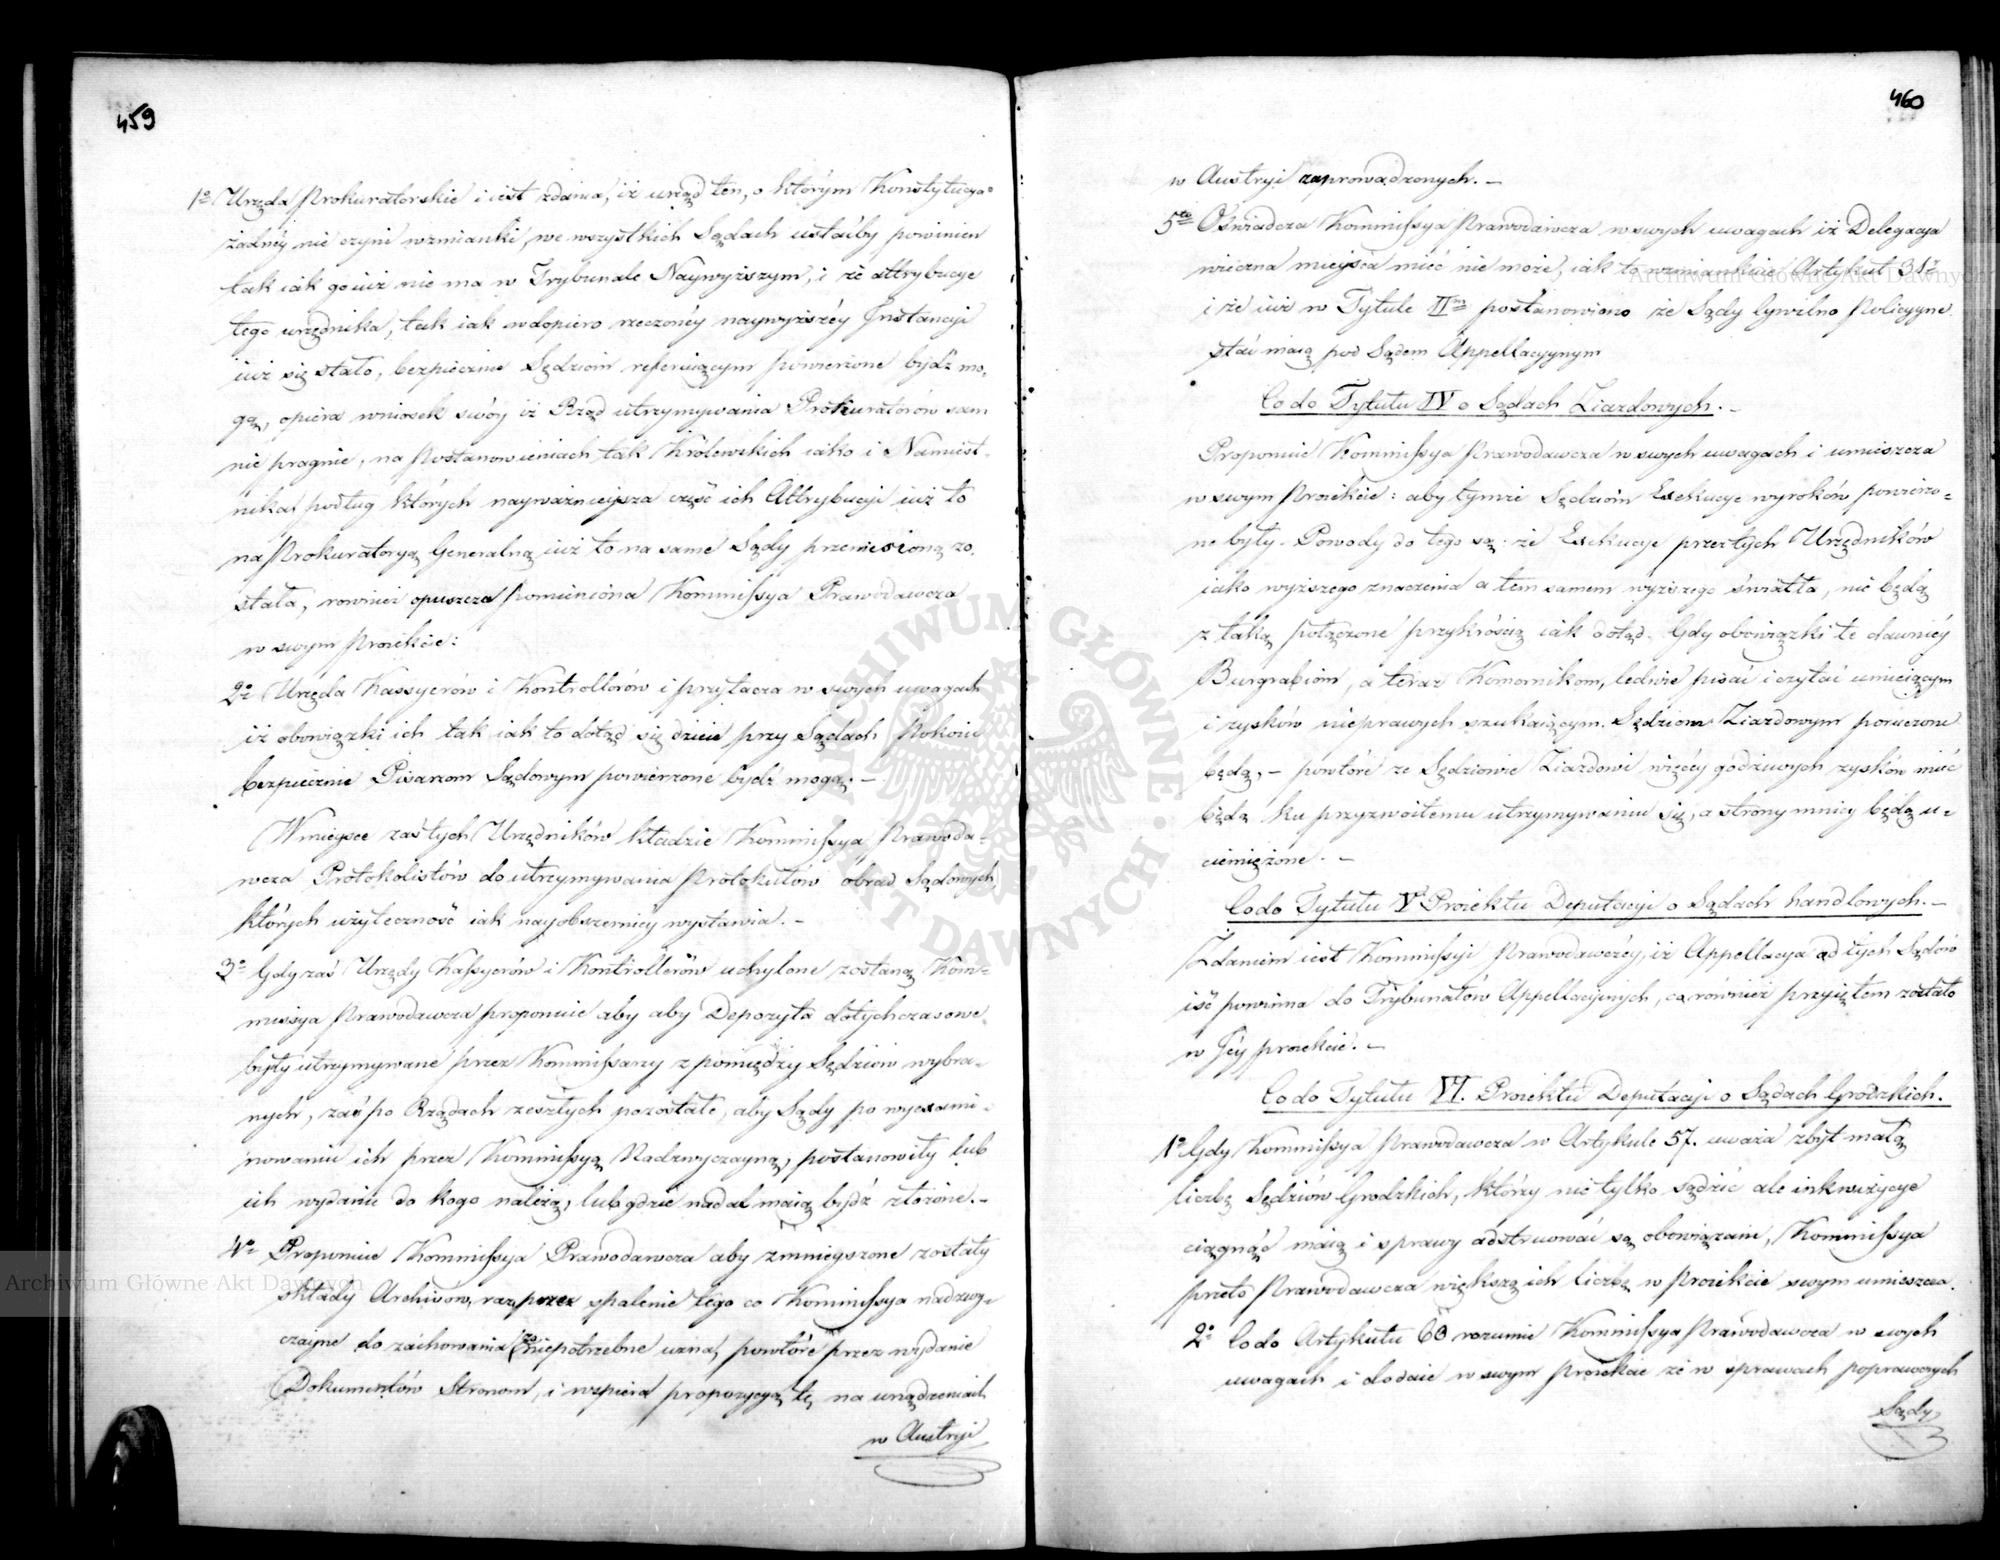 459
1º Urzęda Prokuratorskie i iest zdania, iż urząd ten, o którym Konstytucya
żadnéy nie czyni wzmianki, we wszystkich Sądach ustaćby powinien
tak iak go iuż nie ma w Trybunale Naywyższym, i że attrybucye
tego urzędnika, tak iak w dopiero rzeczonéy naywyższéy Instancyi
iuż się stało, bezpiecznie Sędziom referuiącym powierzone bydź mo,
gą, opiera wniosek swóy iż Rząd utrzymywania Prokuratorów sam
nie pragnie, na Postanowieniach tak Królewskich iako i Namiest-
nika podług których nayważnieysza część ich Attrybucyi iuż to
na Prokuratoryą Generalną iuż to na same Sądy przeniesioną zo,
stała, rownież opuszcza pomieniona Kommissya Prawodawcza
w swym Proiekcie:
2º Urzęda Kassyerów i Kontrollorów i przytacza w swych uwagach
iż obowiązki ich tak iak to dotąd się dzieie przy Sądach Pokoiu
bezpiecznie Pisarzom Sądowym powierzone bydź mogą. –
W mieysce zaś tych Urzędników kładzie Kommissya Prawoda-
wcza Protokolistów do utrzymywania Protokułów obrad Sądowych
których użyteczność iak nayobszerniey wystawia. –
3º Gdy zaś Urzędy Kassyerów i Kontrollerów uchylone zostaną Kom-
missya Prawodawcza proponuie aby aby Depozyta dotychczasowe
były utrzymywane przez Kommissarzy z pomiędzy Sędziów wybra-
nych, zaś po Rządach zeszłych pozostałe, aby Sądy po wyexami-
nowaniu ich przez Kommissyą Nadzwyczayną, postanowiły lub
ich wydanie do kogo należą, lub gdzie nadal maią bydź złożone. –
4º Proponuie Kommissya Prawodawcza aby zmnieyszone zostały
składy Archiwów, raz przez spalenie tego co Kommissya nadzwy-
czaine do zachowania za niepotrzebne uzna, powtóre przez wydanie
Dokumentów Stronom, i wspiera propozycyą tę na urządzeniach
w Austryi
460
w Austryi zaprowadzonych. –
5to Oświadcza Kommissya Prawodawcza w swych uwagach iż Delegacya
wieczna mieysca mieć nie może, iak to wzmiankuie Artykuł 31º
i że iuż w Tytule IIm postanowiono że Sądy Cywilno Policyyne
stać maią pod Sądem Appellacyynym
Co do Tytułu IV o Sądach Ziazdowych. –
Proponuie Kommissya Prawodawcza w swych uwagach i umieszcza
w swym Proiekcie: aby tymże Sędziom Exekucye wyroków powierzo-
ne były. Powody do tego są: że Exekucye przez tych Urzędników
iako wyższego znaczenia a tem samem wyższego światła, nie będą
z taką połączone przykrością iak dotąd. Gdy obowiązki te dawniéy
Burgrabiom, a teraz Komornikom, ledwie pisać i czytać umieiącym
i zysków nieprawych szukaiącym. Sędziom Ziazdowym poruczone
będą, – powtóre że Sędziowie Ziazdowi więcéy godziwych zysków mieć
będą ku przyzwoitemu utrzymywaniu się, a strony mniey będą u-
ciemiężone. –
Co do Tytułu V Proiektu Deputacyi o Sądach handlowych. –
Zdaniem iest Kommissyi Prawodawczéy, iż Appellacya od tych Sądów
iść powinna do Trybunałów Appellacyinych, co również przyiętem zostało
w Jéy proiekcie. –
Co do Tytułu VI. Proiektu Deputacyi o Sądach Grodzkich.
1º Gdy Kommissya Prawodawcza w Artykule 57. uważa zbyt małą
liczbę Sędziów Grodzkich, którzy nie tylko sądzić ale inkwizycye
ciągnąć maią i sprawy adstruować są obowiązani, Kommissya
przeto Prawodawcza większą ich liczbę w Proiekcie swym umieszcza.
2º Co do Artykułu 60 rozumie Kommissya Prawodawcza w swych
uwagach i dodaie w swym Proiekcie że w sprawach poprawczych
Sądy
Archiwum Główne Akt Dawnych
Archiwum Główne Akt Dawnych
ARCHIWUM GŁÓWNE · AKT DAWNYCH ·